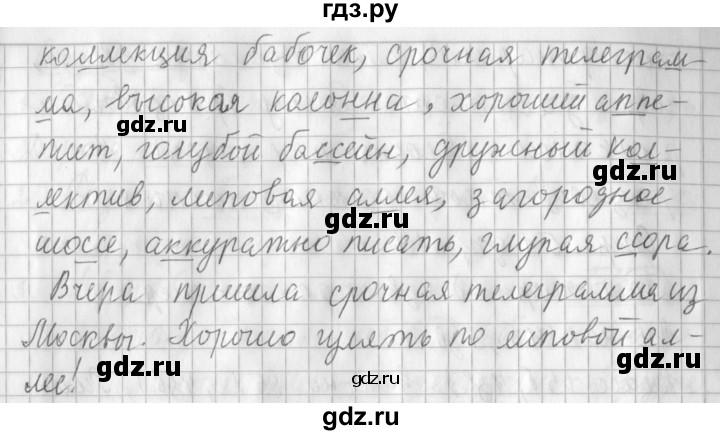 гдз.ру
коллекция бабочек, срочная телеграм-
ма, высокая колонна, хороший аппе-
gdz.ru
тит, голубой бассейн, дружный кол-
gdz.ru
лектив, липовая аллея, загородное
gdz.ru
шоссе, аккуратно писать, глупая ссора.
gdz.ru
Вчера пришла срочная телеграмма из
Москвы. Хорошо гулять по липовой ал-
gdz.ru
gdz.ru
лее!
gdz.ru